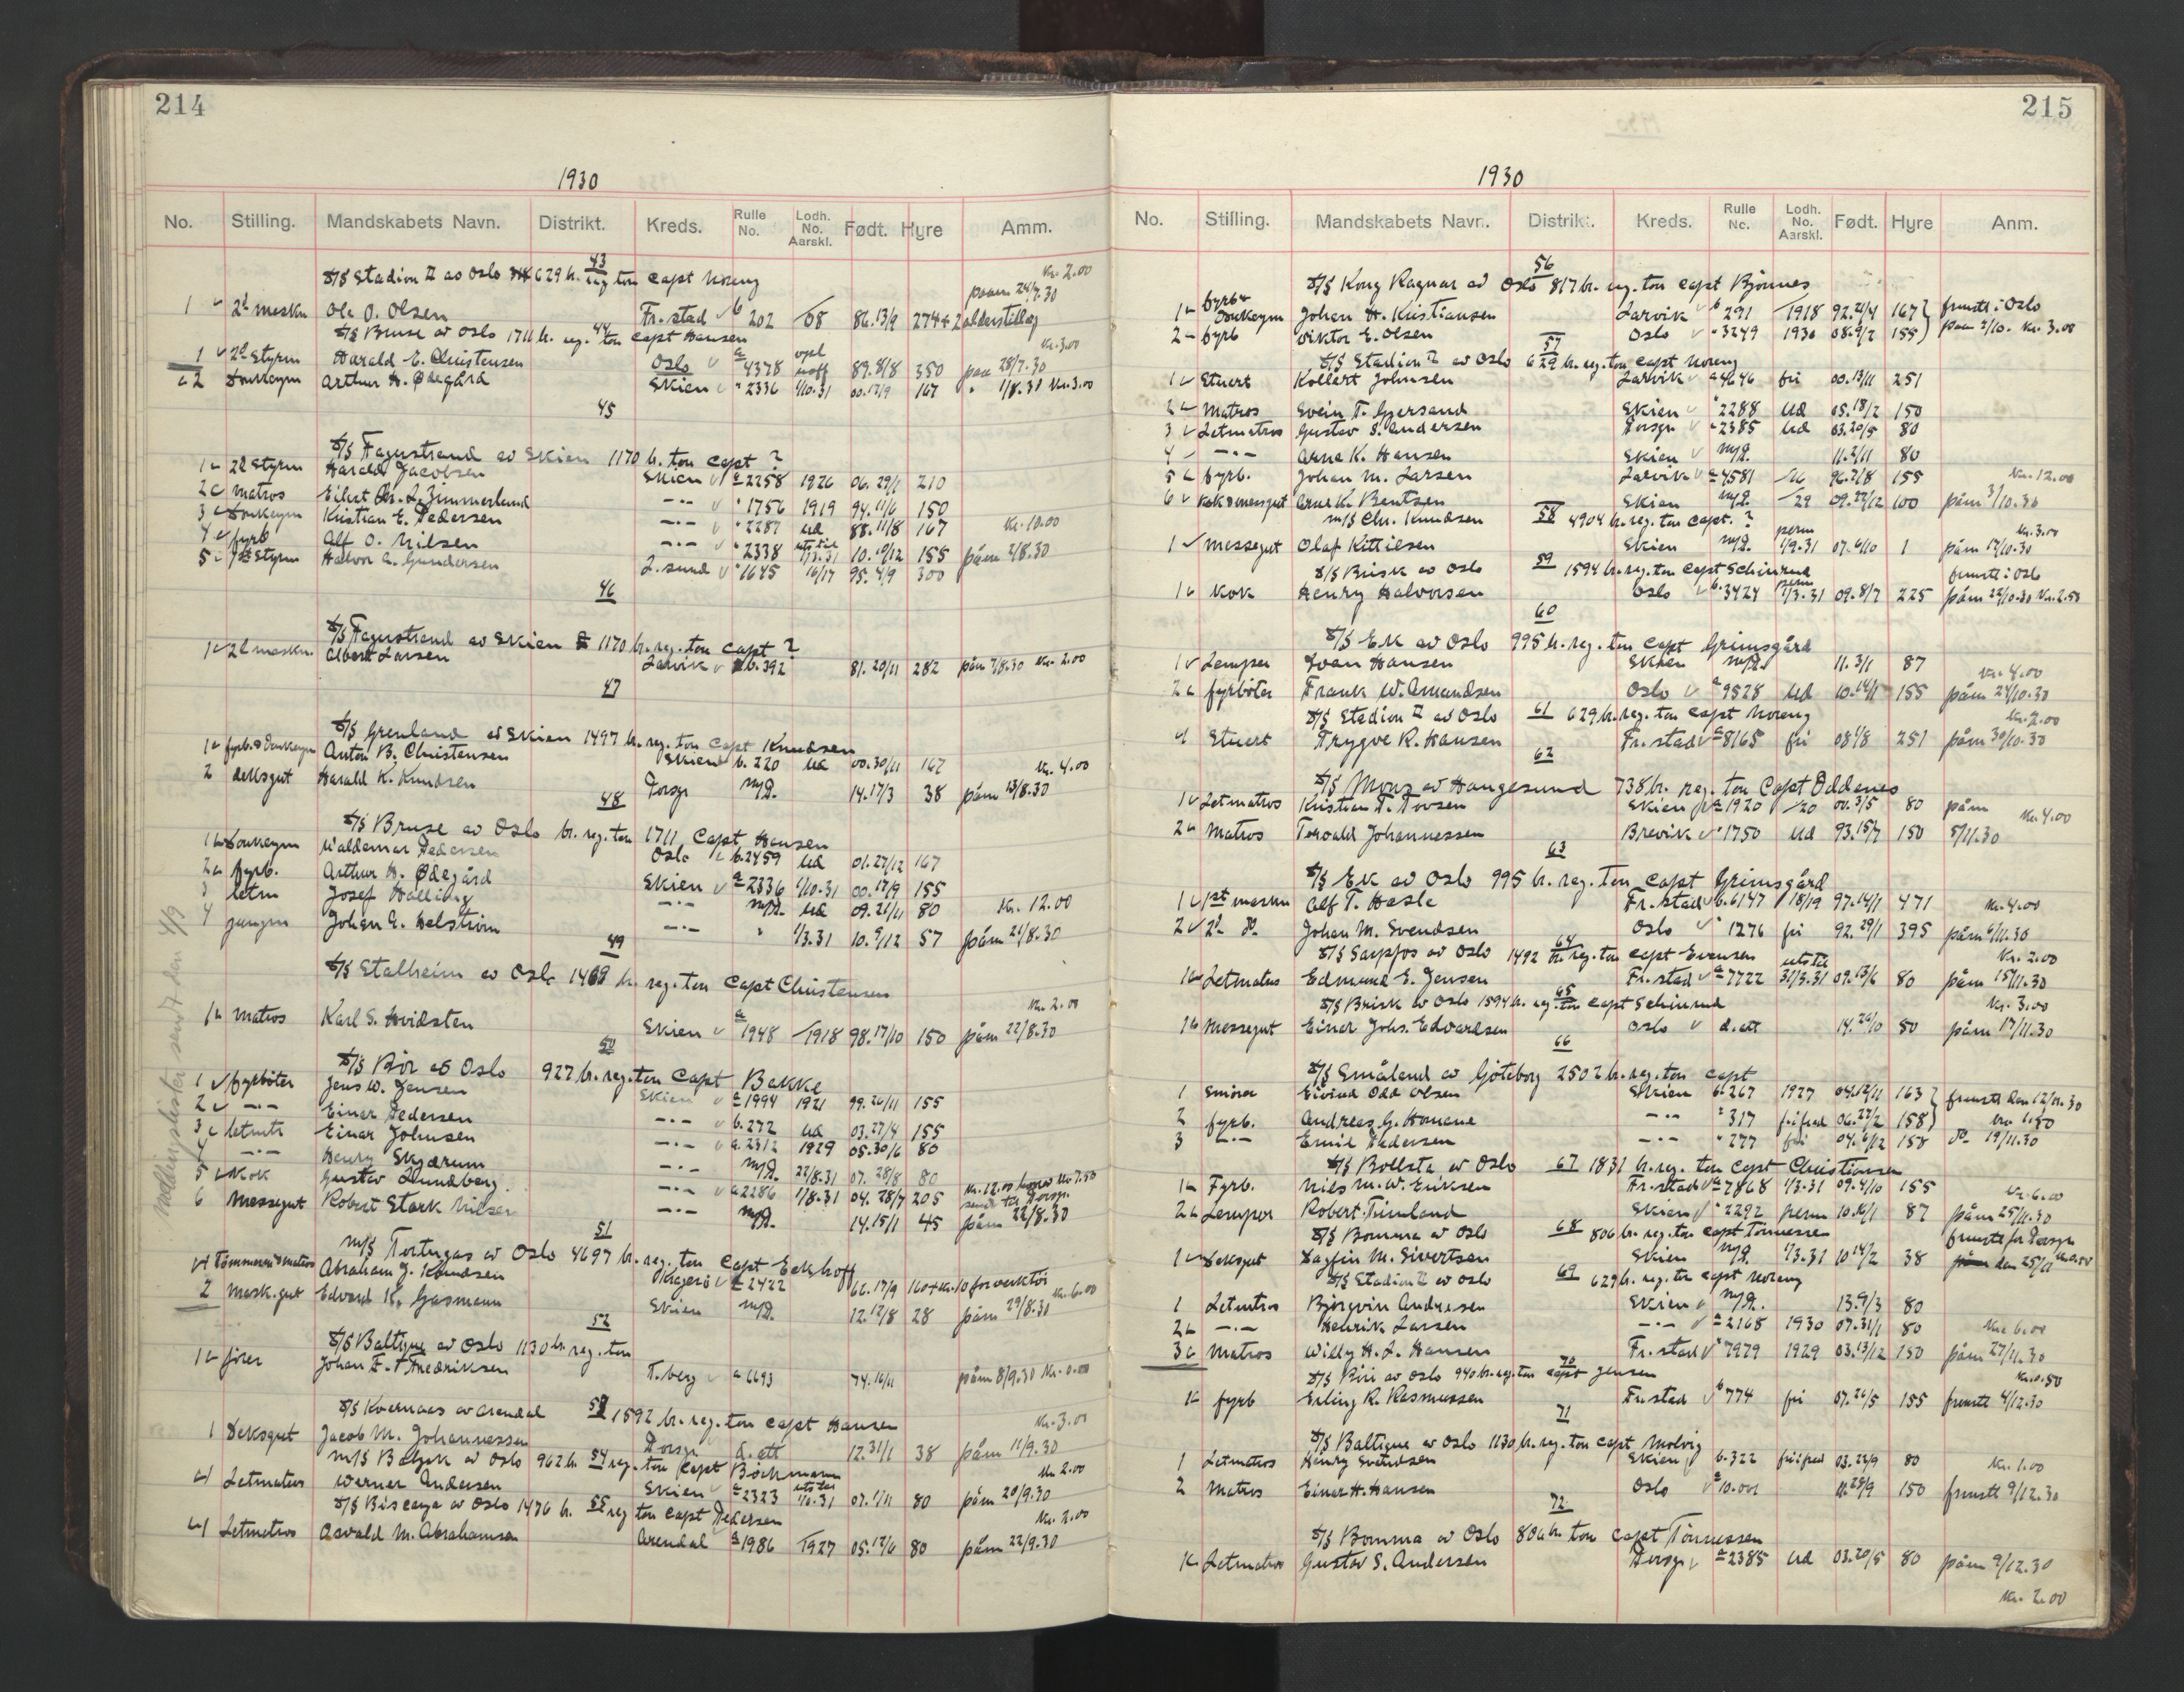 214
1930
No. Stilling. Mandskabets Navn. Distrikt. Kreds. Rulle No. Lodh. No. Aarskl. Født. Hyre Anm.
43
S/S Stadion II av Oslo 629 br. reg ton Capt Noreng Kr. 2.00
paam 24/7.30
1 2d maskn Ole O. Olsen Fr.stad b 202 /08 86.13/9 274+2 alderstillæg
44
S/S Bruse av Oslo 1711 br. reg. ton Capt Hansen Kr. 3.00
1 2d Styrm Harald E. Christensen Oslo a 4378 89.8/8 350 paa 28/7.30
2 Donkeym Arthur H. Ødegård Skien " 2336 1/10.31 00.17/9 167 " 1/8.30 Kr. 3.00
45
S/S Fagerstrand av Skien 1170 br. ton Capt ?
1 2d Styrm Harald Jacobsen Skien a 2258 1926 06.29/1 210
2 Matros Eilert Chr. L. Zimmerlund -"- " 1756 1919 94.11/6 150
3 Donkeym Kristian E. Pedersen -"- " 2287 Ud 88.11/8 167 Kr. 10.00
4 fyrb Alf O. Nilsen -"- " 2338 1/3.31 10.10/12 155 påm 2/8.30
5 1ste Styrm Halvor A. Gundersen L.sund " 1645 16/17 95.4/9 300
46
S/S Fagerstrand av Skien 1170 br. reg. ton Capt ?
1 2d maskn. Albert Larsen Larvik b. 392 81.20/11 282 påm 7/8.30 Kr. 2.00
47
S/S Grenland av Skien 1497 br. reg. ton Capt Knudsen
1 fyrb. & Donkeym Anton B. Christensen Skien b. 220 Ud 00.30/11 167 Kr. 4.00
2 dekksgut Harald K. Knudsen Porsgr m/R. 14.17/3 38 påm 13/8.30
48
S/S Bruse av Oslo br. reg. ton 1711 Capt Hansen
1 Donkeym Valdemar Pedersen Oslo b. 2459 Ud 01.27/12 167
2 fyrb. Arthur H. Ødegård Skien a 2336 1/10.31 00.17/9 155
3 letm Josef Halling -"- m/R. Ud 09.21/11 80 Kr. 12.00
4 jungm Johan A. Helström -"- " 1/3.31 10.9/12 57 påm 21/8.30
49
S/S Stalheim av Oslo 1469 br. reg. ton Capt Christensen
Kr. 2.00
1 Matros Karl S. Hvidsten Skien a 1948 /1918 98.17/10 150 påm 22/8.30
50
S/S Bör av Oslo 927 br. reg. ton Capt Bakke
1 fyrböter Jens W. Jensen Skien a 1994 1921 99.26/11 155
2 -"- Einar Pedersen -"- b. 272 Ud 03.27/4 155
3 letmtr Einar Johnsen -"- a. 2312 1929 05.30/6 80
4 -"- Henry Skjærum -"- m/R. 22/8.31 07.28/8 80
5 Kok Gustav Lundberg -"- a 2286 1/8.31 04.28/7 205 Kr. 12.00 Kr 7.50
6 Messegut Robert Stark Nilsen -"- m/R. 14.15/1 45 påm 22/8.30
51
M/S Tortugas av Oslo 4697 br. reg. ton Capt Eckhoff
1 Tömmerm & matros Abraham J. Knudsen Kragerö a 2422 66.17/9 160+Kr. 10 for verktöi
2 Mask.gut Edvard K. Gasmann Skien m/R. 12.12/8 28 påm 29/8.30 Kr. 6.00
52
S/S Baltique av Oslo 1130 br. reg. ton
1 fører Johan F. Fredriksen T.berg a 6693 74.16/11 påm 8/9.30 Kr. 0.00
53
S/S Kvernaas av Arendal 1592 br. reg. ton Capt Hansen Kr. 3.00
1 Deksgut Jacob M. Johannessen Porsgr d. att 12.31/1 38 påm 11/9.30
54
M/S Balzak av Oslo 962 br. reg. ton Capt Böchmann Kr 2.00
1 Letmatros Werner Andersen Skien a 2323 1/6.31 07.1/11 80 påm 20/9.30
55
S/S Biscaya av Oslo 1476 br. reg ton Capt Pedersen Kr. 2.00
1 Letmatros Asvald M. Abrahamsen Arendal a 1986 /1927 05.12/6 80 påm 22/9.30
Mellingslister sendt den 4/9
215
1930
No. Stilling. Mandskabets Navn. Distrikt. Kreds. Rulle No. Lodh. No. Aarskl. Født. Hyre Anm.
56
S/S Kong Ragnar av Oslo 817 br. reg. ton Capt Bjönnes
1 fyrb & Donkeym Johan H. Kristiansen Larvik b 291 /1918 92.21/4 167 frmstt i Oslo
2 fyrb Viktor E. Olsen Oslo " 3249 1930 08.9/2 155 paa 2/10. Kr. 3.00
57
S/S Stadion II av Oslo 629 br. reg. ton Capt Noreng
1 Stuert Kollert Johnsen Larvik a 4646 fri 00.13/11 251
2 Matros Svein T. Gjersand Skien " 2288 Ud 05.18/2 150
3 Letmatros Gustav S. Andersen Porsgr " 2385 Ud 03.20/5 80
4 -"- Arne K. Hansen Skien m/R. 11.2/11 80
5 fyrb. Johan M. Larsen Larvik a 4581 /16 96.2/8 155 Kr. 12.00
6 Kok & messegut Arne K. Bentsen Skien m/R. /29 09.22/12 100 påm 3/10.30
58
M/S Chr. Knudsen 4904 br. reg. ton Capt. ? Kr. 3.00
1 Messegut Olaf Kittilsen Skien m/R. perm 1/9.31 07.6/10 1 påm 17/10.30
59
S/S Brisk av Oslo 1594 br. reg. ton Capt Schinrud frmstt i Oslo
1 Kok Henry Halvorsen Oslo b. 3424 1/3.31 09.8/7 225 påm 22/10.30 Kr. 2.50
60
S/S Ek av Oslo 995 br. reg. ton Capt Grimsgård
1 Lemper Ivan Hansen Skien m/R. 11.3/1 87 Kr. 4.00
2 fyrböter Frank W. Amundsen Oslo a 9528 Ud 10.14/1 155 påm 24/10.30
61
S/S Stadion II av Oslo 629 br. reg. ton Capt Noreng Kr. 2.00
1 Stuert Trygve R. Hansen Fr.stad a 8165 fri 08.1/8 251 påm 30/10.30
62
S/S Mona av Haugesund 738 br. reg. ton Capt Oddenes
1 Letmatros Kristian T. Tovsen Skien a 1920 /20 00.3/5 80 påm Kr. 4.00
2 Matros Torvald Johannessen Brevik " 1750 Ud 93.15/7 150 5/11.30
63
S/S Ek av Oslo 995 br. reg. ton Capt Grimsgård
1 1st maskn Alf T. Hasle Fr.stad b. 6147 18/19 97.14/1 471 Kr. 4.00
2 2d Do Johan M. Svendsen Oslo " 1276 fri 92.29/1 395 påm 6/11.30
64
S/S Sarpfos av Oslo 1492 br. reg. ton Capt Evensen Kr. 2.00
1 Letmatros Edmund E. Jensen Fr.stad a 7722 utstt 31/3.31 09.13/6 80 påm 15/11.30
65
S/S Brisk av Oslo 1594 br. reg. ton Capt Schinrud Kr. 3.00
1 Messegut Einar Johs. Edvardsen Oslo d. att 14.26/10 50 påm 17/11.30
66
S/S Småland av Göteborg 2502 br. reg. ton Capt
1 Smörer Eivind Odd Olsen Skien b. 267 1927 04.12/11 163 frmstt den 12/11.30
2 fyrb. Andreas G. Homane -"- " 317 frifred 06.27/2 158 Kr. 1.50
3 -"- Emil Pedersen -"- " 277 fri 04.6/12 158 Do 19/11.30
67
S/S Bollsta av Oslo 1831 br. reg. ton Capt Christiansen
1 Fyrb. Nils M. W. Eriksen Fr.stad a 7868 1/3.31 09.4/10 155 Kr. 6.00
2 Lemper Robert Timland Skien " 2292 perm 10.16/1 87 påm 25/11.30
68
S/S Bomma av Oslo 806 br. reg. ton Capt Tönnessen frmstt for Porsgr
1 Deksgut Dagfin M. Sivertsen Skien m/R. 1/3.31 10.14/2 38 den 25/11
69
S/S Stadion II av Oslo 629 br. reg. ton Capt Noreng
1 Letmtros Björgvin Andresen Skien m/R. 13.9/3 80
2 -"- Henrik Larsen -"- a 2168 1930 07.31/1 80 Kr. 6.00
3 Matros Willy H. L. Hansen Fr.stad " 7979 1929 03.13/12 150 påm 27/11.30
70
S/S Biri av Oslo 940 br. reg. ton Capt Jensen Kr. 0.50
1 fyrb Erling R. Rasmussen Fr.stad b 774 fri 07.26/5 155 frmstt 4/12.30
71
S/S Baltique av Oslo 1130 br. reg. ton Capt Molvig
1 Letmatros Henry Svendsen Skien b. 322 frifred 03.22/9 80 Kr. 1.00
2 Matros Einar H. Hansen Oslo a 10.001 11.28/9 150 frmstt 9/12.30
72
S/S Bomma av Oslo 806 br. ton Capt Tönnessen
1 Letmatros Gustav S. Andersen Porsgr a 2385 Ud 03.20/5 80 påm 9/12.30
Kr. 2.00